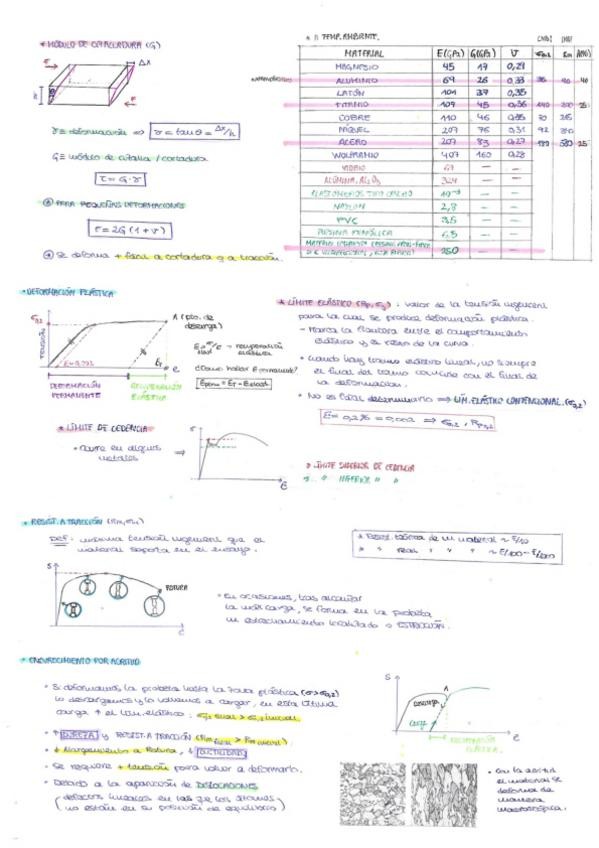 * MÓDULO DE CIZALLADURA (G)
Δx
F
h
F
γ ≡ deformación ⇒ γ = tan θ = Δx/h
G ≡ módulo de cizalla / cortadura
τ = G · γ
PARA PEQUEÑAS DEFORMACIONES
E = 2G (1 + ν)
Se deforma + fácil a cortadura q a tracción.
TEMP. AMBIENTE.
MATERIAL E(GPa) G(GPa) ν
MAGNESIO 45 17 0,29
ALUMINIO 69 26 0,33 40
LATÓN 101 37 0,35
TITANIO 107 45 0,36 25
COBRE 110 46 0,35 70
NÍQUEL 207 76 0,31 92
ACERO 207 83 0,27 25
WOLFRAMIO 407 160 0,28
VIDRIO — —
ALÚMINA, Al₂O₃ 324 — —
— —
NAYLON 2,8 — —
PVC 3,5 — —
RESINA FENÓLICA 6,5 — —
— —
• DEFORMACIÓN PLÁSTICA
TENSIÓN
A (pto. de descarga)
E = 0,002
recuperación elástica
¿Cómo hallar E permanente?
Eperm = ET - Eelast
DEFORMACIÓN PERMANENTE
RECUPERACIÓN ELÁSTICA
* LÍMITE ELÁSTICO : valor de la tensión ingenieril
para la cual se produce deformación plástica.
- Marca la frontera entre el comportamiento
elástico y el resto de la curva.
• Cuando hay tramo elástico lineal, no siempre
el final del tramo coincide con el final de
la deformación.
• No es fácil determinarlo ⇒ LÍM. ELÁSTICO CONVENCIONAL (σ0,2)
E = 0,2% = 0,002 ⇒ σ0,2 , Rp0,2
* LÍMITE DE CEDENCIA
• Ocurre en algunos
metales ⇒
LÍMITE SUPERIOR DE CEDENCIA
" INFERIOR " "
* RESIST. A TRACCIÓN
DEF: máxima tensión ingenieril que el
material soporta en el ensayo.
* Resist. teórica de un material ~ E/10
" real " " " ~ E/100 - E/1000
S
ROTURA
• En ocasiones, tras alcanzar
la máx carga, se forma en la probeta
un estrechamiento localizado o ESTRICCIÓN.
* ENDURECIMIENTO POR ACRITUD
• Si deformamos la probeta hasta la zona plástica (σ > σ0,2)
la descargamos y la volvemos a cargar, en esta última
carga ↑ el lím. elástico : σ final > σ inicial
• ↑ DUREZA y RESIST. A TRACCIÓN
• ↓ Alargamiento a Rotura, ↓ DUCTILIDAD
• Se requiere + tensión para volver a deformarlo.
• Debido a la aparición de DISLOCACIONES
(defectos lineales en las que los átomos
no están en su posición de equilibrio)
S
A
descarga
carga
RECUPERACIÓN ELÁSTICA
• Con la acritud
el material se
deforma de
manera
macroscópica.